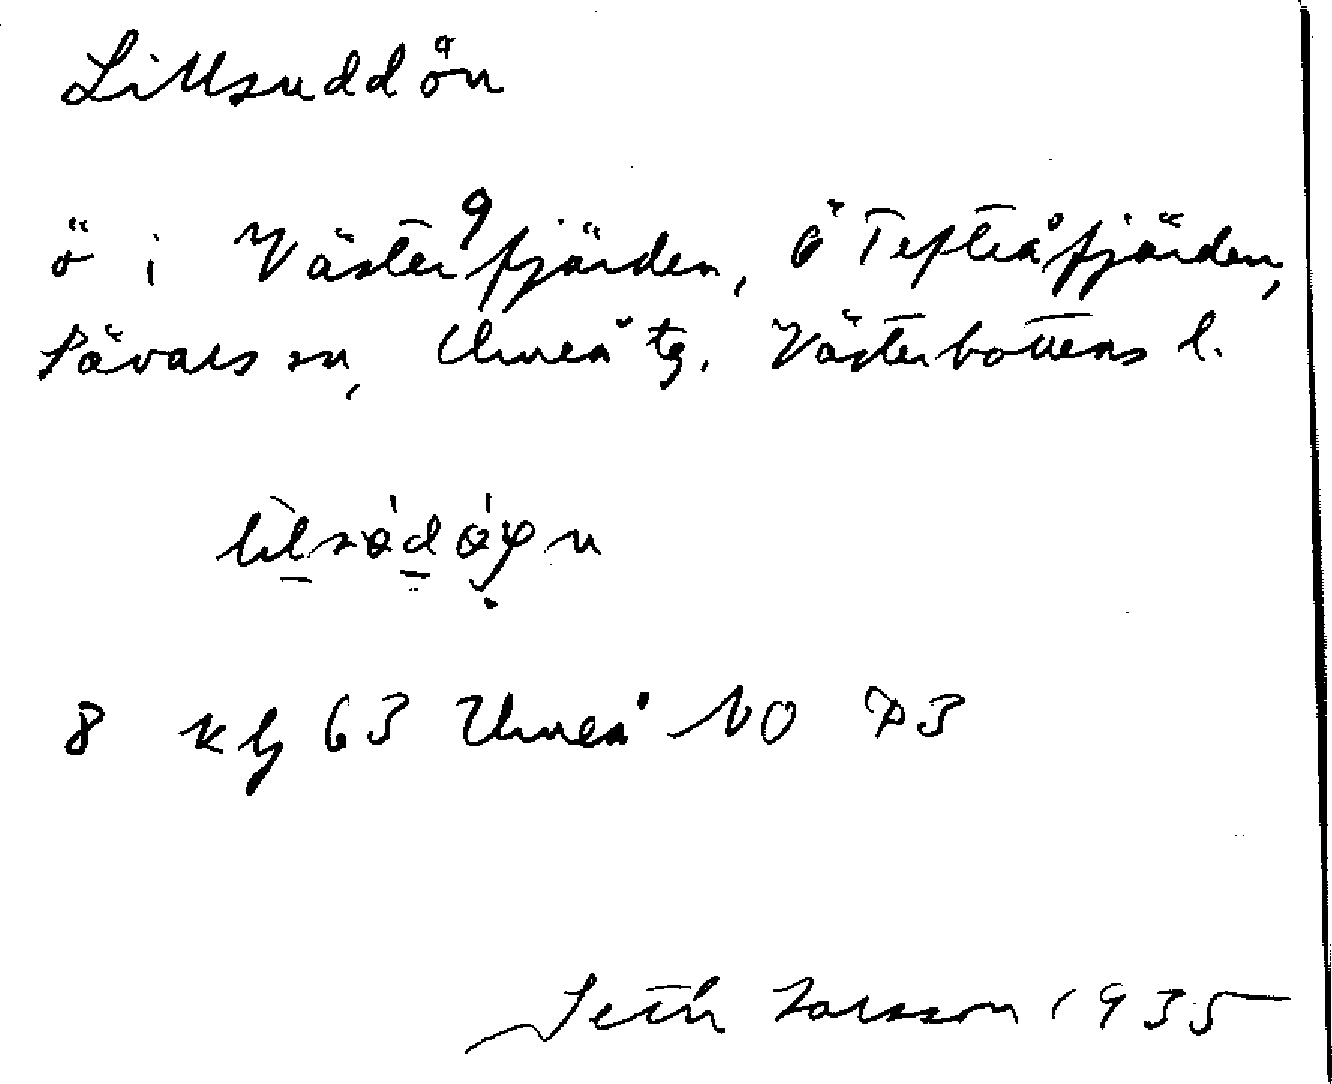 Lillsuddön
ö i Västerfjärden, ö Tefteåfjärden,
Sävars sn, Umeå tg. Västerbottens l.
8 kbj 63 Umeå NO P3
Seth Larsson 1935